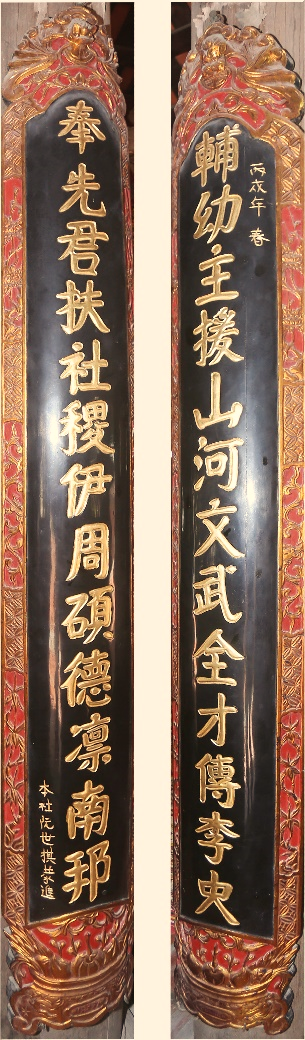 丙戌年 春
輔幼主援山河文武全才傳李史
奉先君扶社稷伊周碩德凛南邦
本社阮世恭進